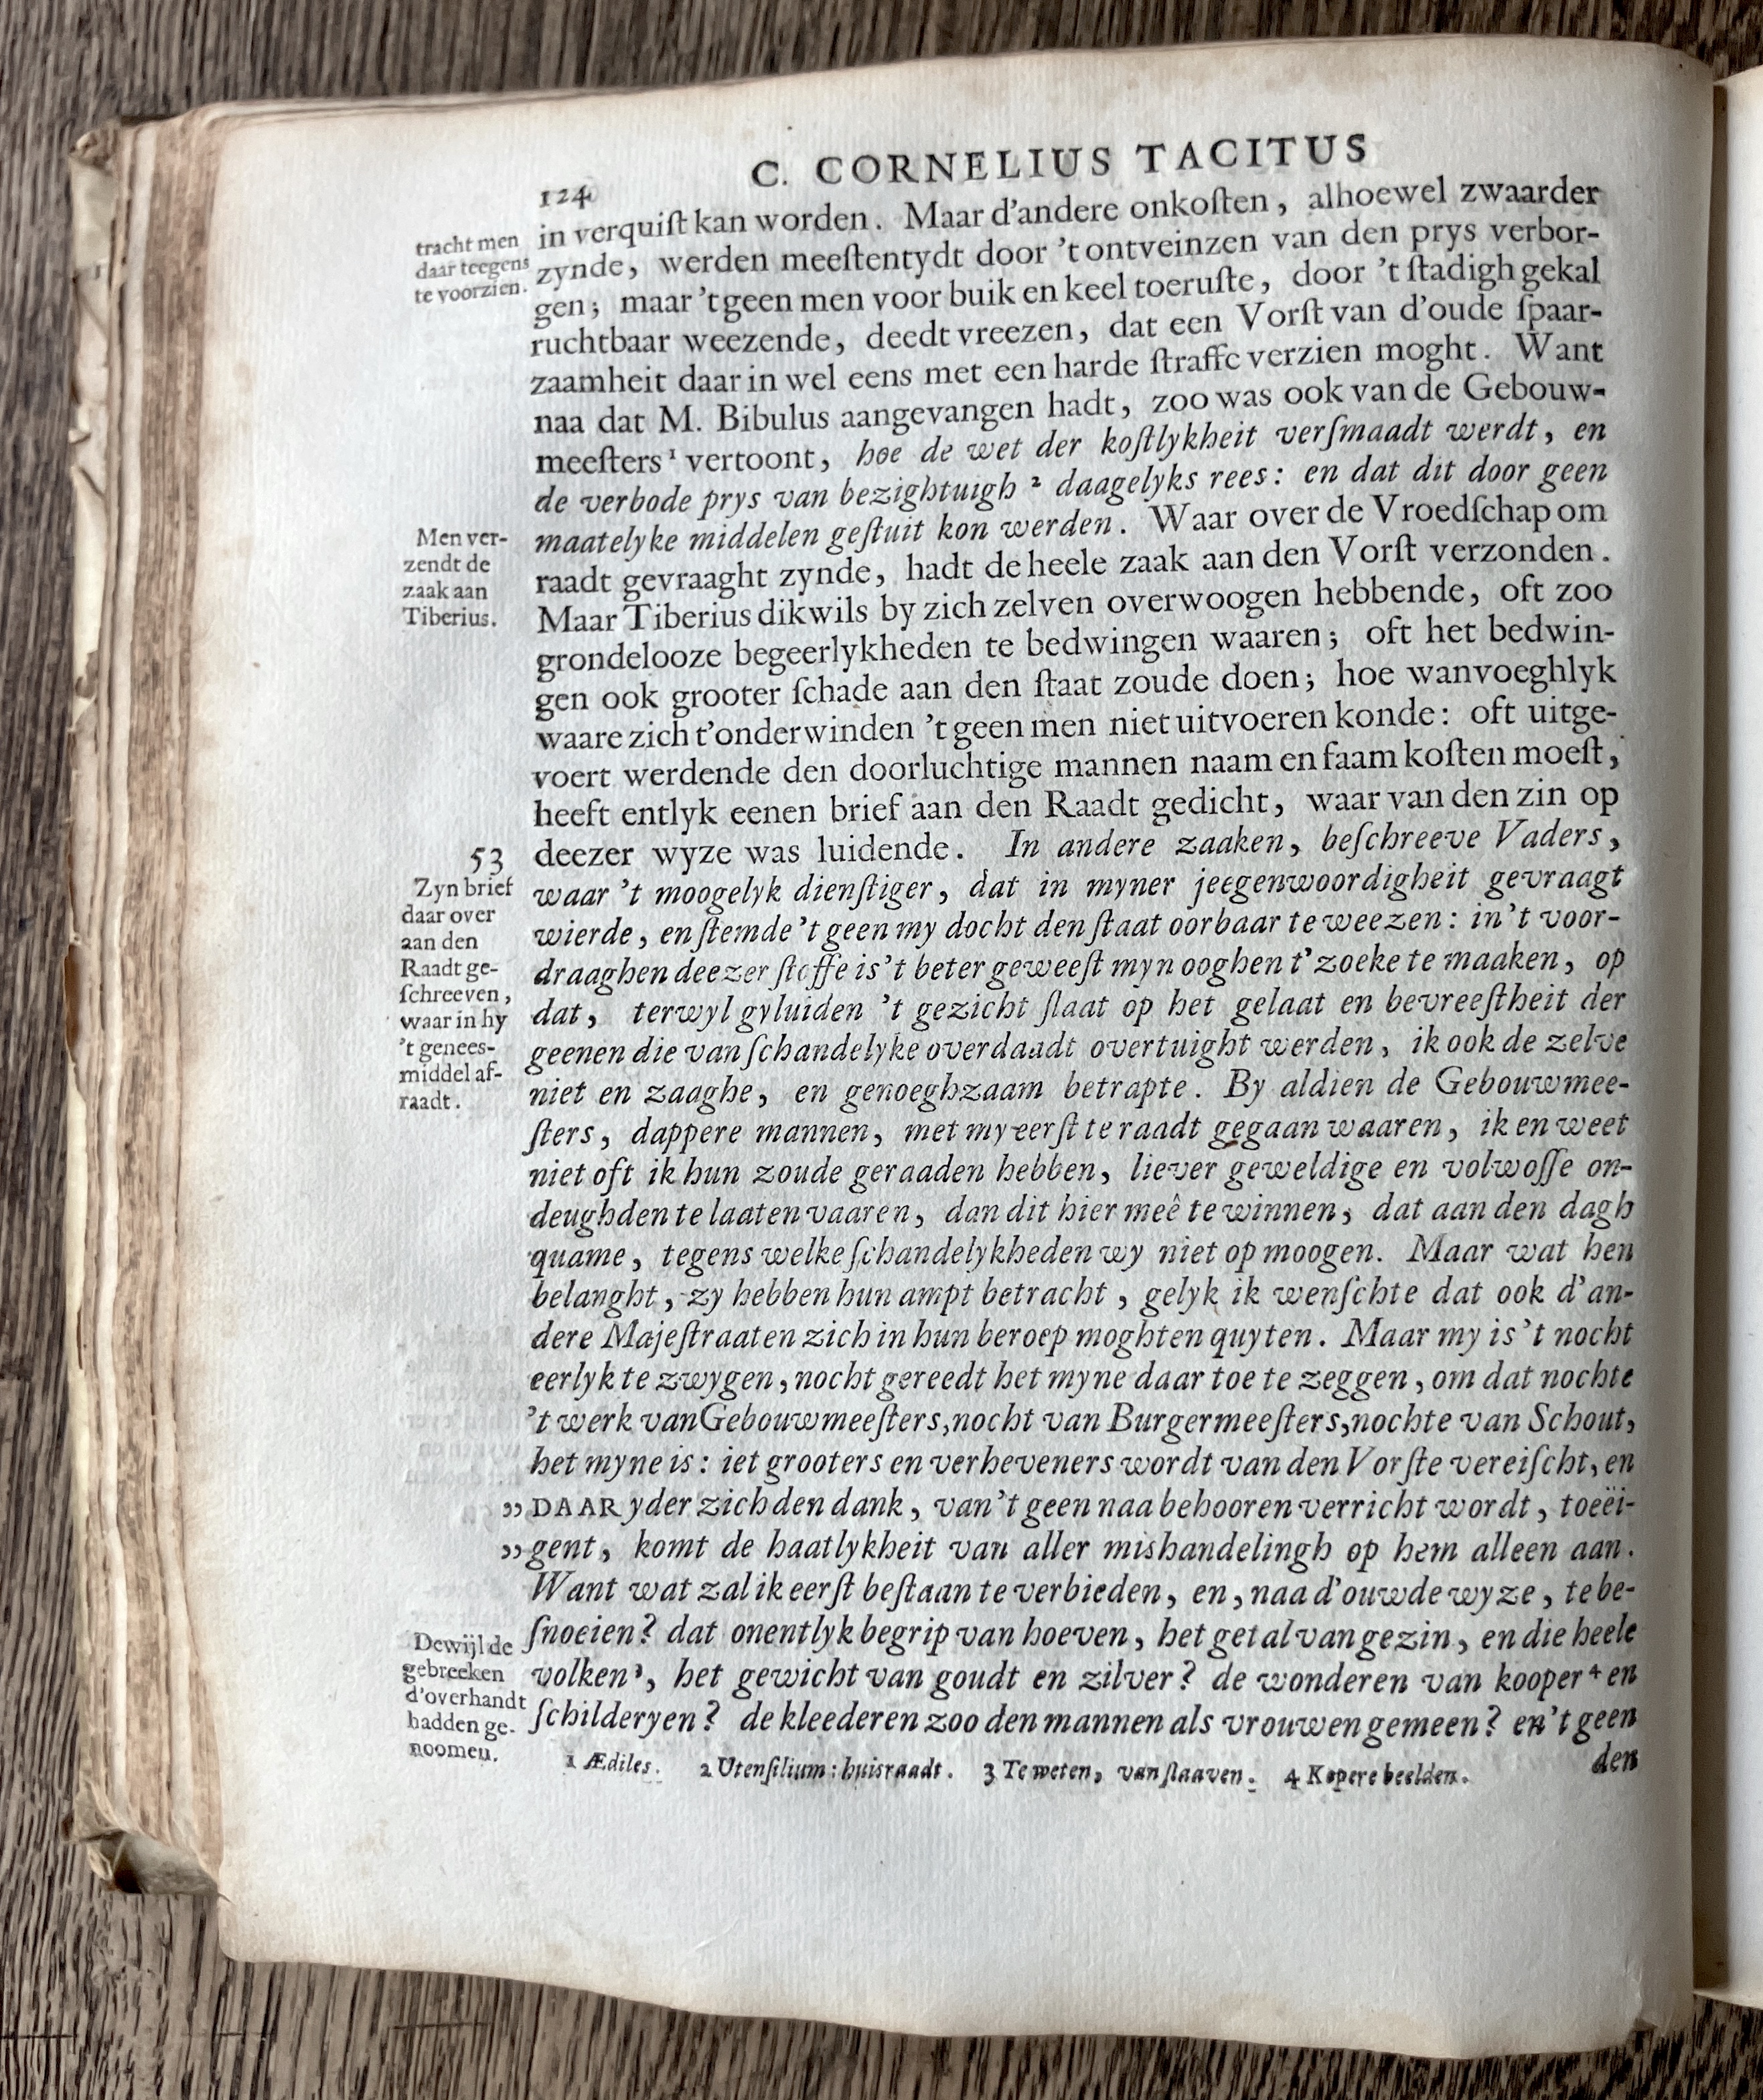 C. CORNELIUS TACITUS
124
tracht men
daar teegens
te voorzien.
in verquiſt kan worden. Maar d'andere onkoſten, alhoewel zwaarder
zynde, werden meeſtentydt door 't ontveinzen van den prys verbor-
gen; maar 't geen men voor buik en keel toeruſte, door 't ſtadigh gekal
ruchtbaar weezende, deedt vreezen, dat een Vorſt van d'oude ſpaar-
zaamheit daar in wel eens met een harde ſtraffe verzien moght. Want
naa dat M. Bibulus aangevangen hadt, zoo was ook van de Gebouw-
meeſters¹ vertoont, hoe de wet der koſtlykheit verſmaadt werdt, en
de verbode prys van bezightuigh ² daagelyks rees: en dat dit door geen
maatelyke middelen geſtuit kon werden. Waar over de Vroedſchap om
raadt gevraaght zynde, hadt de heele zaak aan den Vorſt verzonden.
Men ver-
zendt de
zaak aan
Tiberius.
Maar Tiberius dikwils by zich zelven overwoogen hebbende, oft zoo
grondelooze begeerlykheden te bedwingen waaren; oft het bedwin-
gen ook grooter ſchade aan den ſtaat zoude doen; hoe wanvoeghlyk
waare zich t'onderwinden 't geen men niet uitvoeren konde: oft uitge-
voert werdende den doorluchtige mannen naam en faam koſten moeſt,
heeft entlyk eenen brief aan den Raadt gedicht, waar van den zin op
deezer wyze was luidende. In andere zaaken, beſchreeve Vaders,
53
Zyn brief
daar over
aan den
Raadt ge-
ſchreeven,
waar in hy
't genees-
middel af-
raadt.
waar 't moogelyk dienſtiger, dat in myner jeegenwoordigheit gevraagt
wierde, en ſtemde 't geen my docht den ſtaat oorbaar te weezen: in 't voor-
draaghen deezer ſtoffe is 't beter geweeſt myn ooghen t' zoeke te maaken, op
dat, terwyl gyluiden 't gezicht ſlaat op het gelaat en bevreeſtheit der
geenen die van ſchandelyke overdaadt overtuight werden, ik ook de zelve
niet en zaaghe, en genoeghzaam betrapte. By aldien de Gebouwmee-
ſters, dappere mannen, met my eerſt te raadt gegaan waaren, ik en weet
niet oft ik hun zoude geraaden hebben, liever geweldige en volwoſſe on-
deughden te laaten vaaren, dan dit hier meê te winnen, dat aan den dagh
quame, tegens welke ſchandelykheden wy niet op moogen. Maar wat hen
belanght, zy hebben hun ampt betracht, gelyk ik wenſchte dat ook d' an-
dere Majeſtraaten zich in hun beroep moghten quyten. Maar my is 't nocht
eerlyk te zwygen, nocht gereedt het myne daar toe te zeggen, om dat nochte
't werk van Gebouwmeeſters, nocht van Burgermeeſters, nochte van Schout,
het myne is: iet grooters en verheveners wordt van den Vorſte vereiſcht, en
„ DAAR yder zich den dank, van 't geen naa behooren verricht wordt, toeëi-
„ gent, komt de haatlykheit van aller mishandelingh op hem alleen aan.
Want wat zal ik eerſt beſtaan te verbieden, en, naa d'ouwde wyze, te be-
ſnoeien? dat onentlyk begrip van hoeven, het getal van gezin, en die heele
volken³, het gewicht van goudt en zilver? de wonderen van kooper ⁴ en
ſchilderyen? de kleederen zoo den mannen als vrouwen gemeen? en 't geen
Dewijl de
gebreeken
d'overhandt
hadden ge-
noomen.
den
1 Ædiles. 2 Utenſilium: huisraadt. 3 Te weten, van ſlaaven. 4 Kopere beelden.